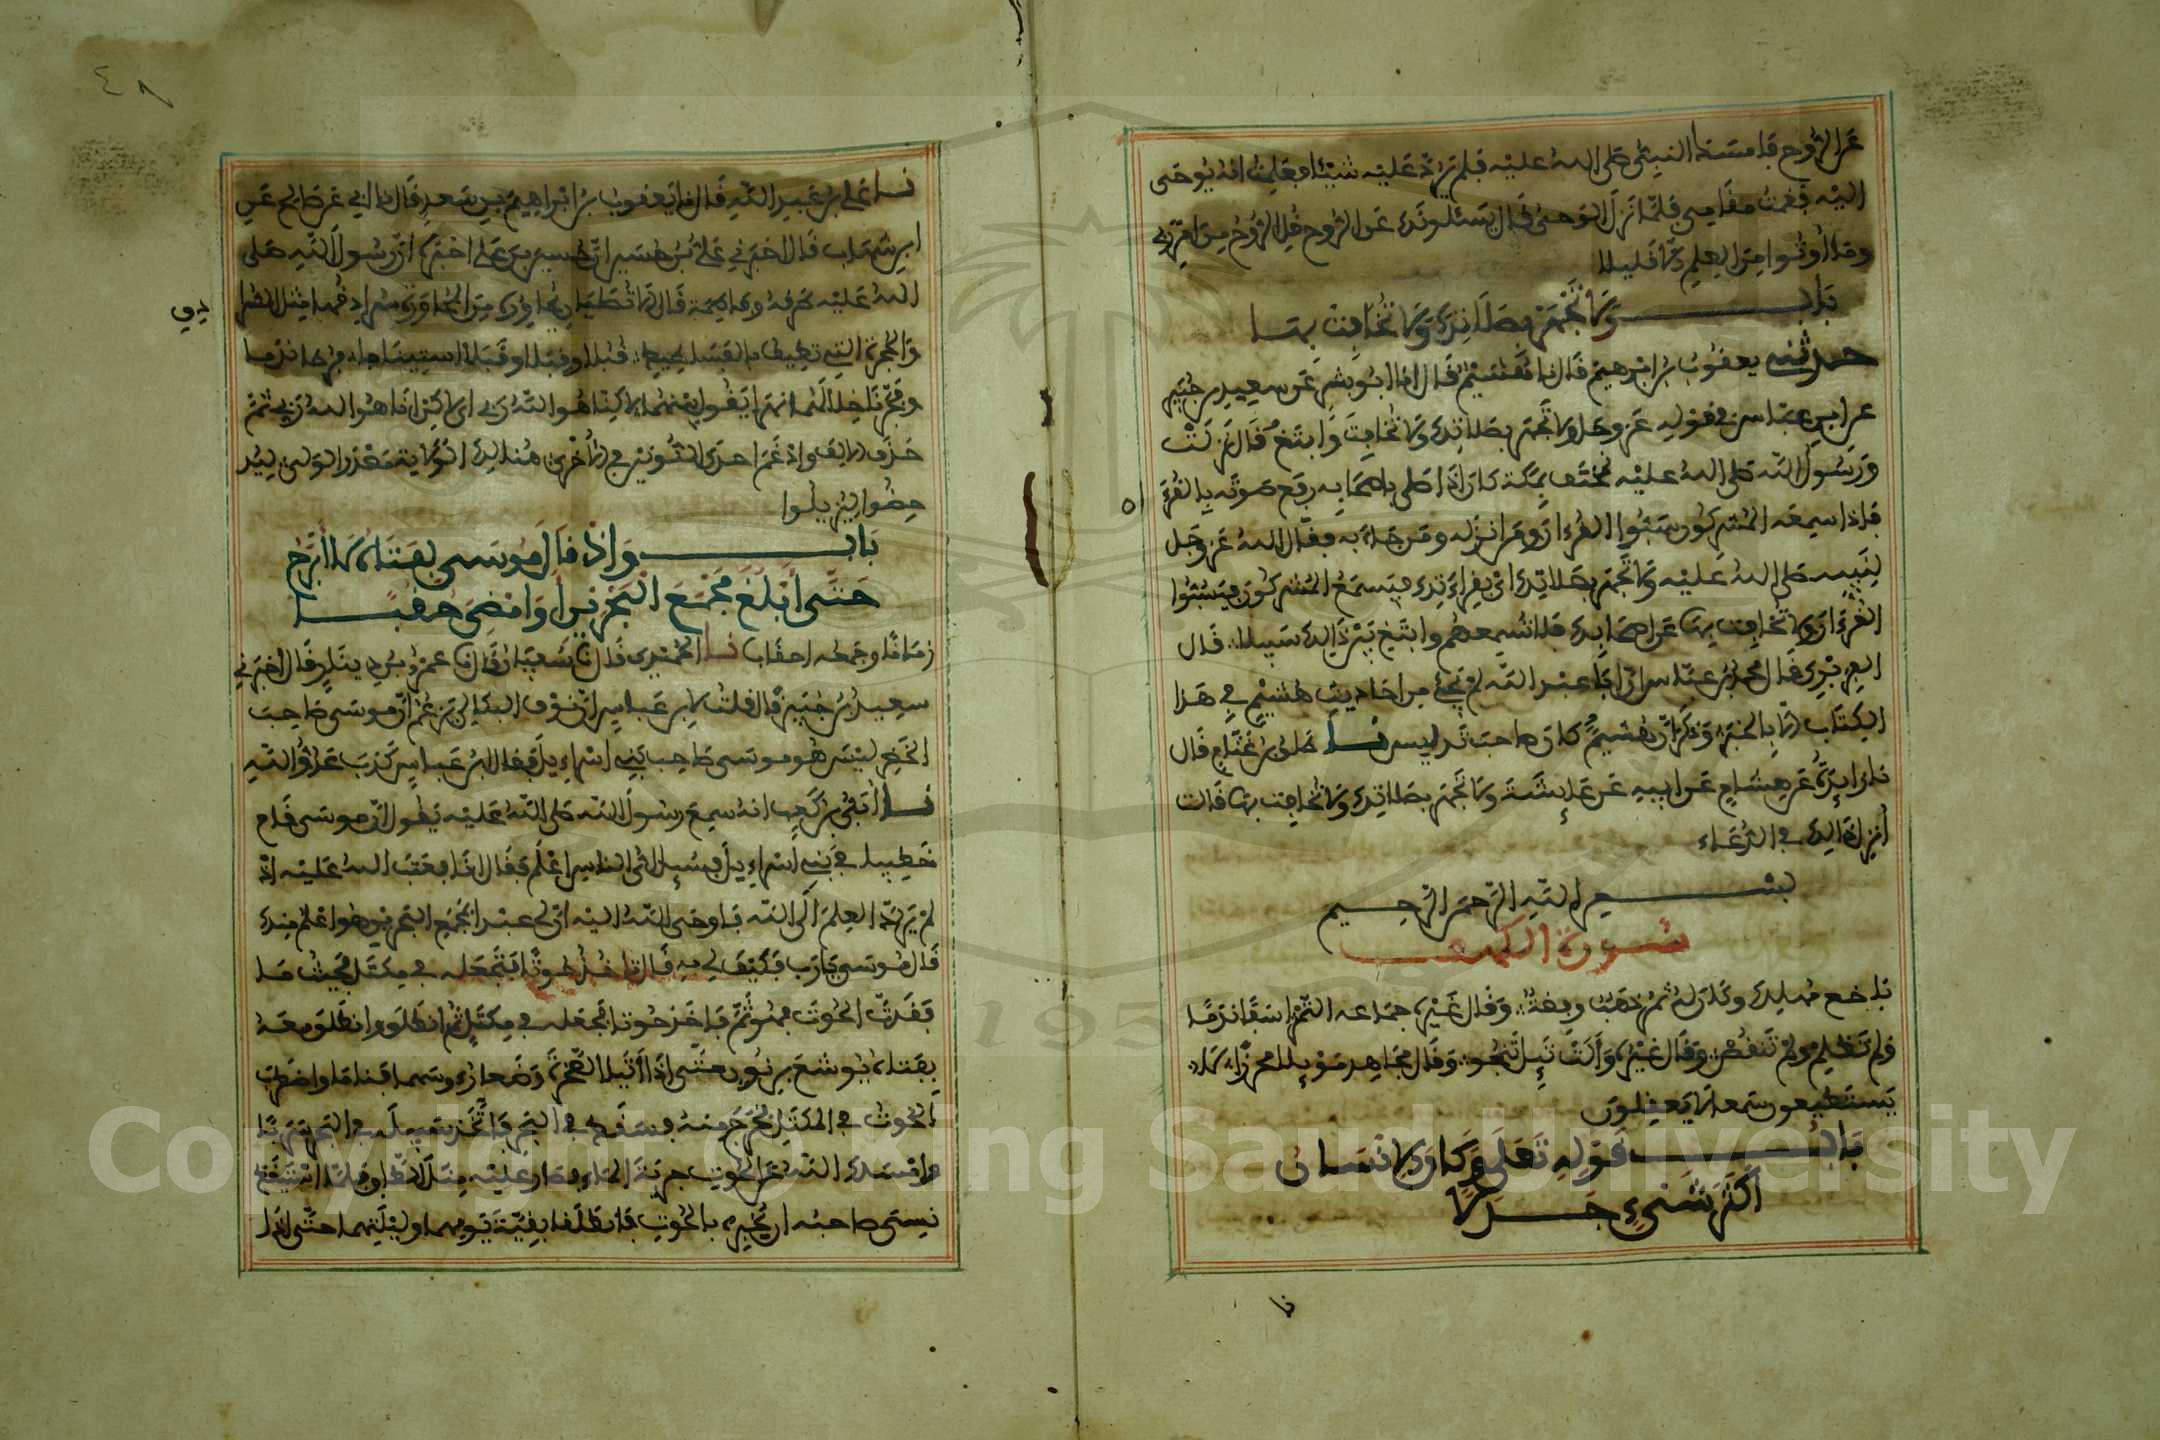 عن الروح فامسك النبي صلى الله عليه فلم يرد عليه شيئا فعلمت انه يوحى
اليه فقمت مقامي فلما نزل الوحي قال يسئلونك عن الروح قل الروح من امر ربي
وما أوتوا من العلم إلا قليلا
باب ولا تجهر بصلاتك ولا تخافت بها
حدثني يعقوب بن ابرهيم قال نا هشيم قال انا ابو بشر عن سعيد بن جبير
عن ابن عباس في قوله عز وجل ولا تجهر بصلاتك ولا تخافت وابتغ قال نزلت
ورسول الله صلى الله عليه مختف بمكة كان اذا صلى باصحابه رفع صوته بالقرءان
فاذا سمعه المشركون سبوا القرءان ومن انزله ومن جاء به فقال الله عز وجل
لنبيه صلى الله عليه ولا تجهر بصلاتك اي بقراءتك فيسمع المشركون فيسبوا
القرءان ولا تخافت بها عن اصحابك فلا تسمعهم وابتغ بين ذالك سبيلا قال
الفربري قال محمد بن عباس ان ابا عبد الله لم يخرج من احاديث هشيم في هذا
الكتاب الا بالخبر وذكر ان هشيم كان صاحب تدليس نا طلق بن غنام قال
نا زائدة عن هشام عن ابيه عن عائشة ولا تجهر بصلاتك ولا تخافت بها قالت
أنزل ذالك في الدعاء
بسم الله الرحمن الرحيم
سورة الكهف
باخع مهلك وكان له ثمر ذهب وفضة وقال غيره جماعه الثمر اسفا ندما
ولم تظلم ولم تنقص وقال غيره وألت تئل تنجو وقال مجاهد موئلا محرزا لا
يستطيعون سمعا لا يعقلون
باب قوله تعلى وكان الإنسان
أكثر شيء جدلا
نا
٤٨
نا علي بن عبد الله قال نا يعقوب بن ابراهيم بن سعد قال نا ابي عن صالح عن
ابن شهاب قال اخبرني علي بن حسين ان حسين بن علي اخبره ان رسول الله صلى
الله عليه طرقه وفاطمة قال الا تصليان يحاوره من المحاورة سرادقها مثل السرادق
والحجرة التي تطيف بالفساطيط قبلا وقبلا وقبلا استينافا فرطا ندما
وفجرنا خلالهما نهرا يقول بينهما لاكنا هو الله ربي اي لاكن انا هو الله ربي ثم
حذف الالف وادغم احدى النونين في الأخرى هنالك الولاية مصدر الولي ليد
حضوا ليزيلوا
باب وإذ قال موسى لفتاه لا أبرح
حتى أبلغ مجمع البحرين أو امضي حقبا
زمانا وجمعه احقاب نا الحميدي قال نا سفيان قال نا عمرو بن دينار قال اخبرني
سعيد بن جبير قال قلت لابن عباس ان نوف البكالي يزعم ان موسى صاحب
الخضر ليس هو موسى صاحب بني اسراءيل فقال ابن عباس كذب عدو الله
نا أبي بن كعب انه سمع رسول الله صلى الله عليه يقول ان موسى قام
خطيبا في بني اسراءيل فسئل اي الناس اعلم فقال انا فعتب الله عليه اذ
لم يرد العلم الى الله فاوحى الله اليه ان لي عبد بمجمع البحرين هو اعلم منك
قال موسى يا رب فكيف لي به قال تاخذ حوتا فتجعله في مكتل فحيث ما
فقدت الحوت فهو ثم فاخذ حوتا فجعله في مكتل ثم انطلق وانطلق معه
بفتاه يوشع بن نون حتى اذا أتيا الصخرة وضعا رءوسهما فناما واضطرب
الحوت في المكتل فخرج منه فسقط في البحر فاتخذ سبيله في البحر سربا
وامسك الله عن الحوت جرية الماء فصار عليه مثل الطاق فلما استيقظ
نسي صاحبه ان يخبره بالحوت فانطلقا بقية يومهما وليلتهما حتى اذا
Copyright © King Saud University
195